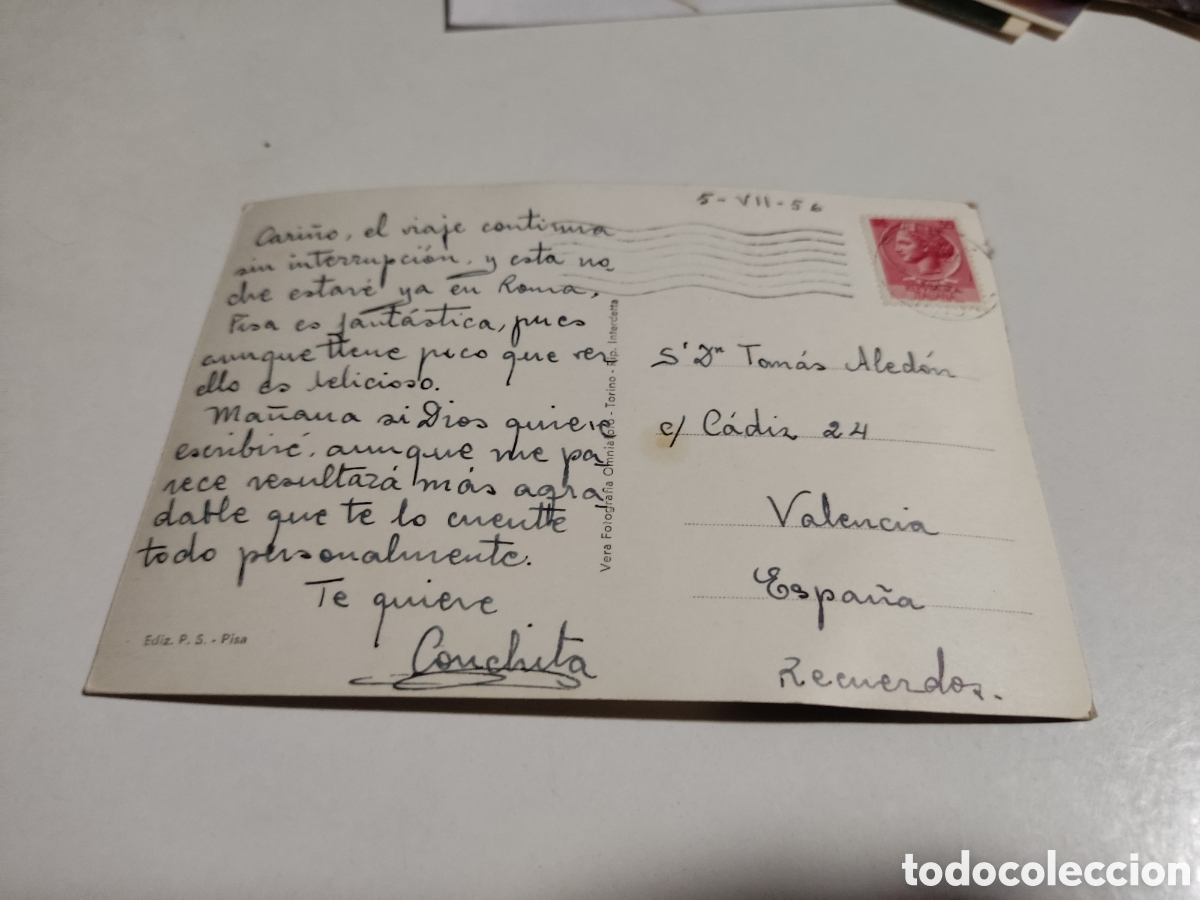 5-VII-56
Cariño, el viaje continua
sin interrupción, y esta no-
che estaré ya en Roma.
Pisa es fantástica, pues
aunque tiene poco que ver
ello es delicioso.
Mañana si Dios quiere
escribiré, aunque me pa-
rece resultará más agra-
dable que te lo cuente
todo personalmente.
Te quiere
Conchita
Ediz. P. S. - Pisa
Vera Fotografia - Torino - Rip. Interdetta
Sr Dn Tomás Aledón
c/ Cádiz 24
Valencia
España
Recuerdos.
todocoleccion